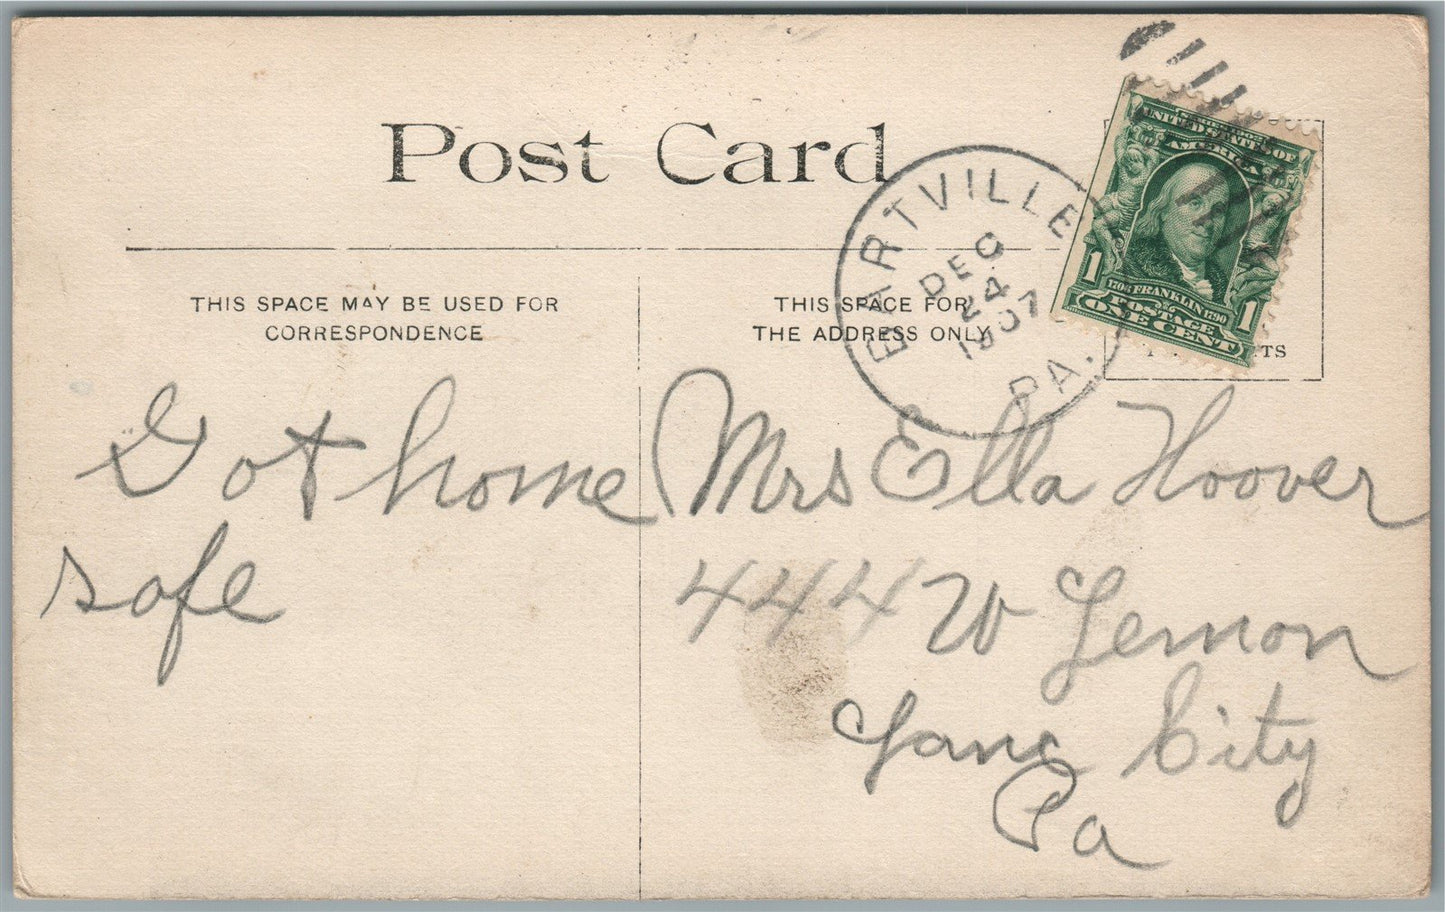 Post Card
THIS SPACE MAY BE USED FOR
CORRESPONDENCE
THIS SPACE FOR
THE ADDRESS ONLY
BARTVILLE
DEC
24
1907
PA.
UNITED STATES OF
AMERICA
1706 FRANKLIN 1790
POSTAGE
1 ONE CENT 1
TS
Got home
safe
Mrs Ella Hoover
444 W Lemon
Lanc City
Pa